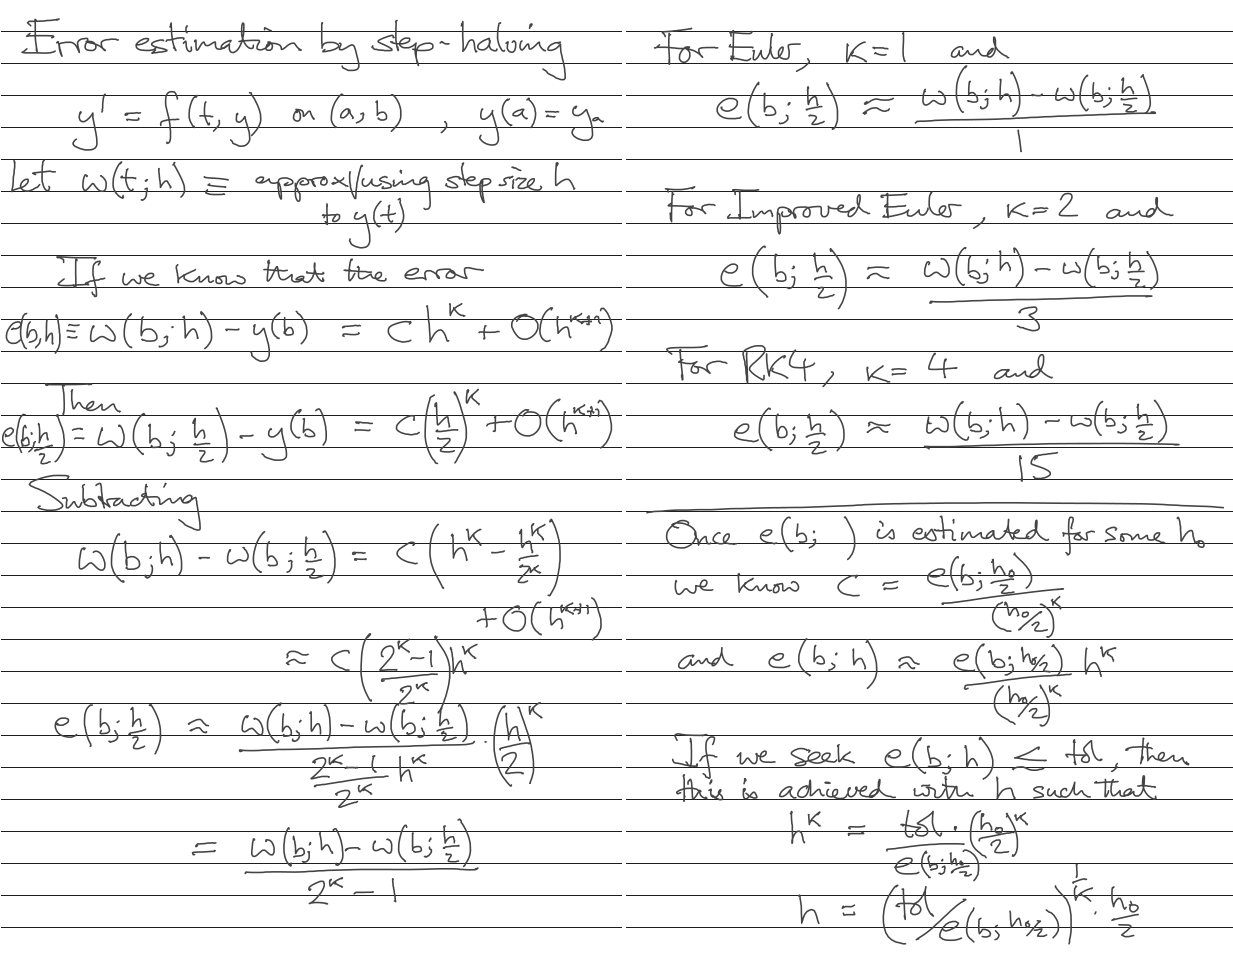 Error estimation by step-halving
y' = f(t, y) on (a, b) , y(a) = yₐ
Let w(t; h) ≡ approx/using step size h
to y(t)
If we know that the error
e(b,h) ≡ w(b; h) - y(b) = C h^K + O(h^{K+1})
Then
e(b; h/2) ≡ w(b; h/2) - y(b) = C(h/2)^K + O(h^{K+1})
Subtracting
w(b; h) - w(b; h/2) = C(h^K - h^K/2^K)
+ O(h^{K+1})
≈ C((2^K - 1)/2^K) h^K
e(b; h/2) ≈ (w(b; h) - w(b; h/2)) / ((2^K - 1)/2^K h^K) · (h/2)^K
= (w(b; h) - w(b; h/2)) / (2^K - 1)
For Euler, K = 1 and
e(b; h/2) ≈ (w(b; h) - w(b; h/2)) / 1
For Improved Euler, K = 2 and
e(b; h/2) ≈ (w(b; h) - w(b; h/2)) / 3
For RK4, K = 4 and
e(b; h/2) ≈ (w(b; h) - w(b; h/2)) / 15
Once e(b; ) is estimated for some h₀
we know C = e(b; h₀/2) / (h₀/2)^K
and e(b; h) ≈ e(b; h₀/2) / (h₀/2)^K h^K
If we seek e(b; h) ≤ tol, then
this is achieved with h such that
h^K = tol · / e(b; h₀/2) (h₀/2)^K
h = (tol / e(b; h₀/2))^{1/K} · h₀/2